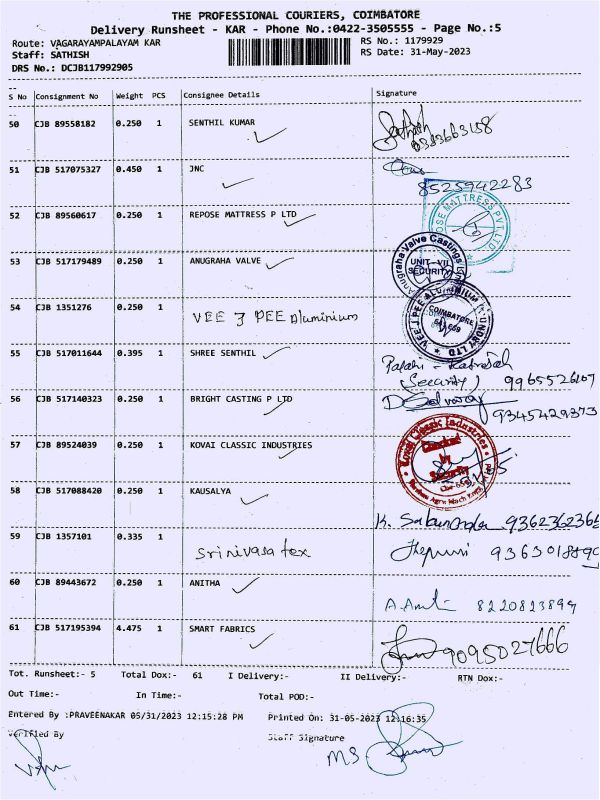 THE PROFESSIONAL COURIERS, COIMBATORE
Delivery Runsheet - KAR - Phone No.:0422-3505555 - Page No.:5
Route: VAGARAYAMPALAYAM KAR
RS No.: 1179929
Staff: SATHISH
RS Date: 31-May-2023
DRS No.: DCJB117992905
S No Consignment No Weight PCS Consignee Details Signature
50 CJB 89558182 0.250 1 SENTHIL KUMAR
51 CJB 517075327 0.450 1 JNC
8525942283
52 CJB 89560617 0.250 1 REPOSE MATTRESS P LTD
REPOSE MATTRESS PVT. LTD.
53 CJB 517179489 0.250 1 ANUGRAHA VALVE
Anugraha Valve Castings
UNIT-VII
SECURITY
54 CJB 1351276 0.250 1 VEE J PEE Aluminium
VEEJ PEE ALUMINIUM FOUNDRY LTD
COIMBATORE
55 CJB 517011644 0.395 1 SHREE SENTHIL
(Security) 9965526107
56 CJB 517140323 0.250 1 BRIGHT CASTING P LTD
9345429373
57 CJB 89524039 0.250 1 KOVAI CLASSIC INDUSTRIES
Kovai Classic Industries
Checked
by
Security
58 CJB 517088420 0.250 1 KAUSALYA
9362362365
59 CJB 1357101 0.335 1 Srinivasa tex
60 CJB 89443672 0.250 1 ANITHA
8220823899
61 CJB 517195394 4.475 1 SMART FABRICS
9095027666
Tot. Runsheet:- 5 Total Dox:- 61 I Delivery:- II Delivery:- RTN Dox:-
Out Time:- In Time:- Total POD:-
Entered By :PRAVEENAKAR 05/31/2023 12:15:28 PM Printed On: 31-05-2023 12:16:35
Verified By Staff Signature